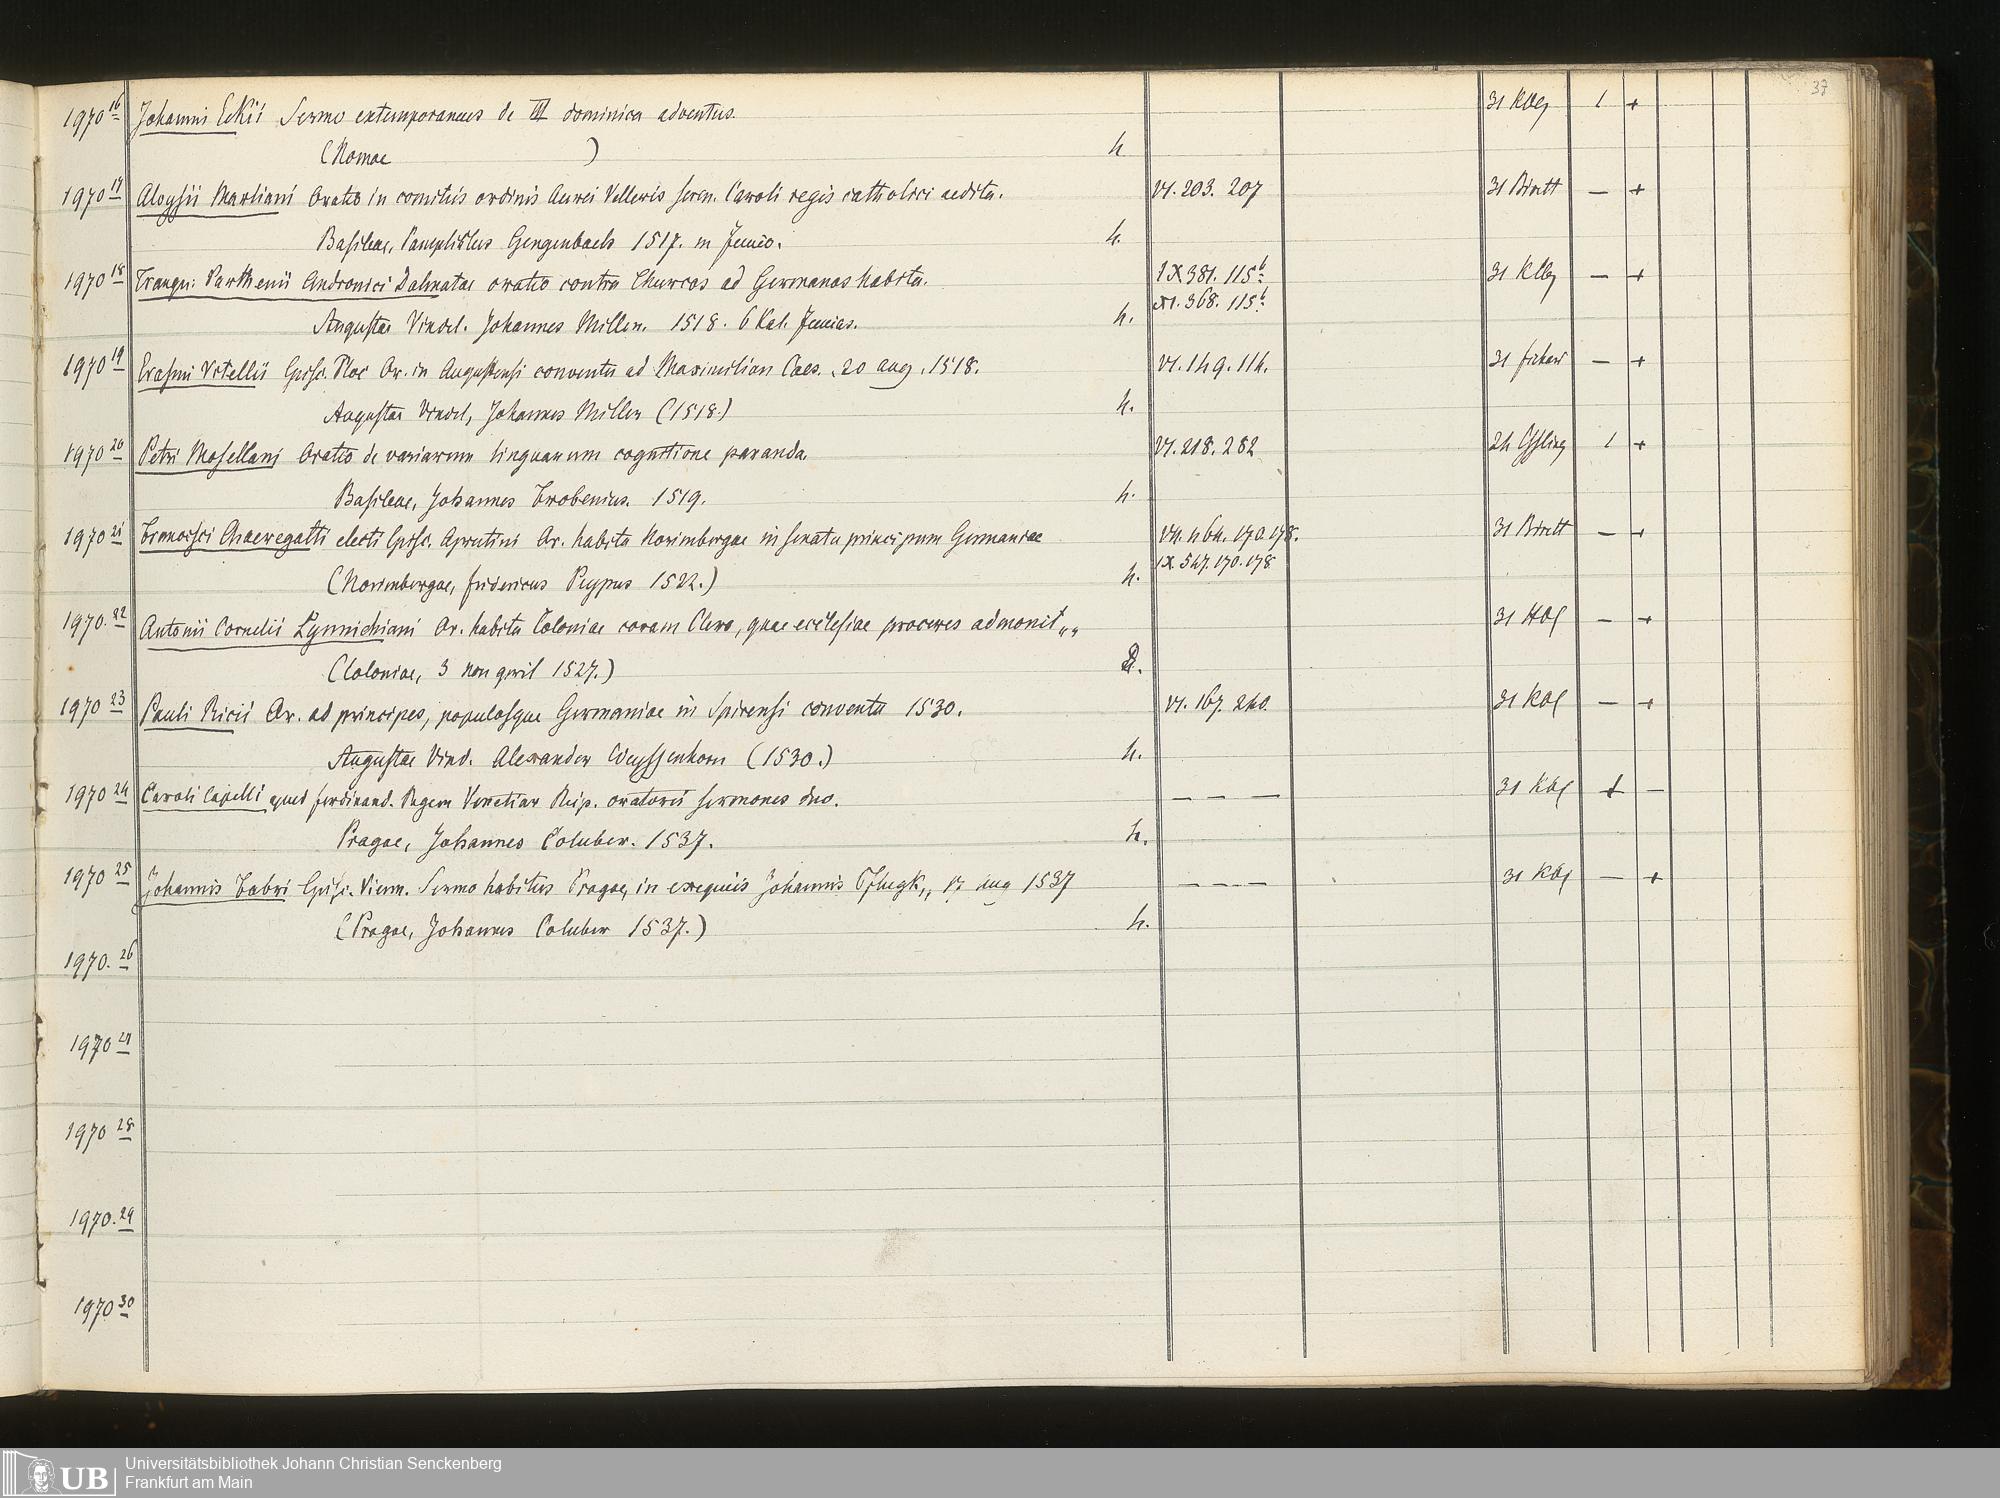 37
1970 16 Johanni Eckii Sermo extemporaneus de III dominica adventus. 31 1 +
(Romae ) 4
1970 17 Aloysii Marliani Oratio in comitiis ordinis Aurei Velleris seren. Caroli regis catholici aedita. VI. 203. 207 31 Birett — +
Basileae, Pamphilus Gengenbach 1517. in Junio. 4.
1970 18 Tranqu: Parthenii Andronici Dalmatae oratio contra Thurcas ad Germanos habita. IX 381. 115b 31 — +
Augustae Vindel. Johannes Miller. 1518. 6 Kal. Junias. 4. XI. 368. 115b
1970 19 Erasmi Vitellii Episc. Ploc Or. in Augustensi conventu ad Maximilian Caes. 20 aug. 1518. VI. 149. 114. 31 — +
Augustae Vindel, Johannes Miller (1518.) 4.
1970 20 Petri Mosellani Oratio de variarum linguarum cognitione paranda. VI. 218. 282 24 1 +
Basileae, Johannes Frobenius. 1519. 4.
1970 21 Francisci Chaeregatti electi Episc. Aprutini Or. habita Norimbergae in senatu principum Germaniae VII. 464. 170. 178. 31 Birett — +
(Norimbergae, Fridericus Peypus 1522.) 4. IX. 547. 170. 178
1970. 22 Antonii Cornelii Lynnichiani Or. habita Coloniae coram Clero, quae ecclesiae proceres admonit „„ 31 — +
(Coloniae, 3 non april 1527.) 8.
1970 23 Pauli Ricii Or. ad principes, populosque Germaniae in Spirensi conventu 1530. VI. 167. 240. 31 — +
Augustae Vind. Alexander Weyssenhorn (1530.) 4.
1970 24 Caroli Capelli apud Ferdinand. Regem Venetiar Reip. oratoris sermones duo. — — — 31 + —
Pragae, Johannes Coluber. 1537. 4.
1970 25 Johannis Fabri Episc. Vienn. Sermo habitus Pragae, in exequiis Johannis Pflugk,, 17 aug 1537 — — — 31 — +
(Pragae, Johannes Coluber 1537.) 4.
1970. 26
1970 27
1970 28
1970. 29
1970 30
UB Universitätsbibliothek Johann Christian Senckenberg
Frankfurt am Main